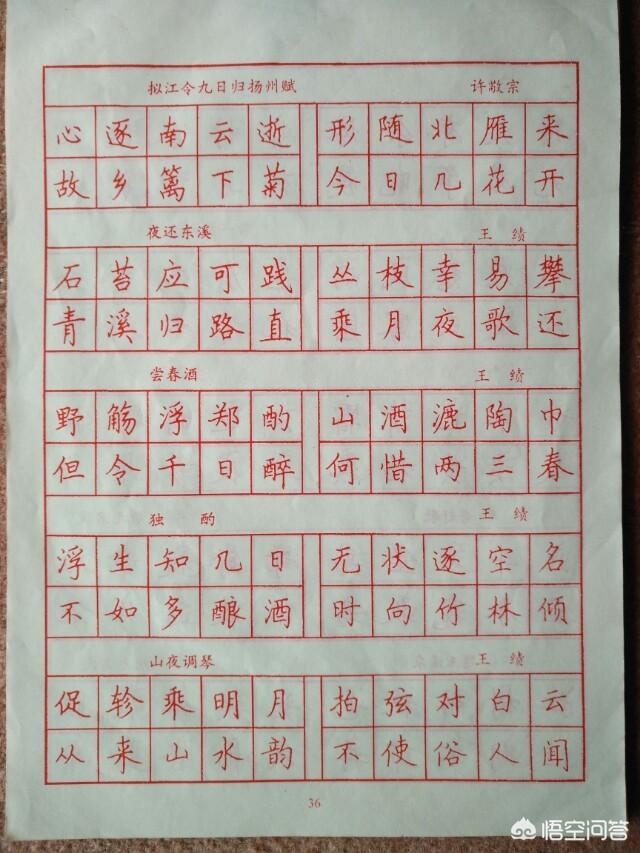 拟江令九日归扬州赋 许敬宗
心逐南云逝 形随北雁来
故乡篱下菊 今日几花开
夜还东溪 王绩
石苔应可践 丛枝幸易攀
青溪归路直 乘月夜歌还
尝春酒 王绩
野觞浮郑酌 山酒漉陶巾
但令千日醉 何惜两三春
独酌 王绩
浮生知几日 无状逐空名
不如多酿酒 时向竹林倾
山夜调琴 王绩
促轸乘明月 拍弦对白云
从来山水韵 不使俗人闻
36
悟空问答